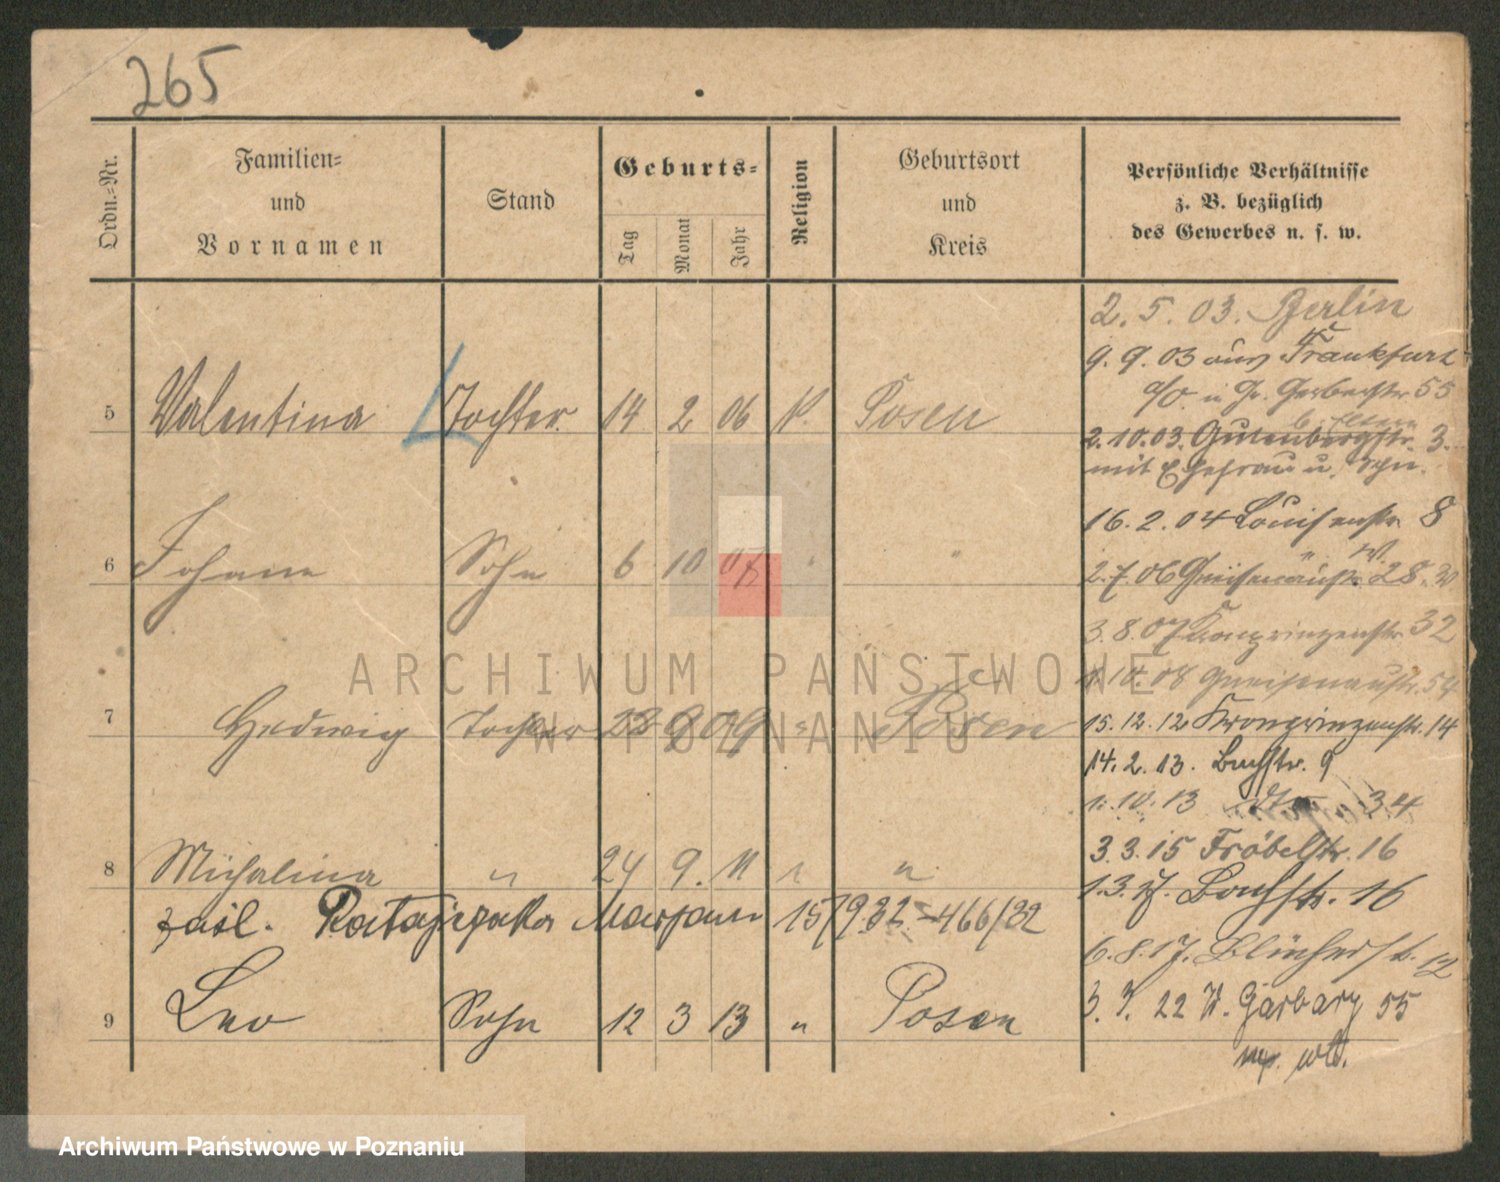 265
Ordn.-Nr. Familien- und Vornamen Stand Geburts- Tag Monat Jahr Religion Geburtsort und Kreis Persönliche Verhältnisse z. B. bezüglich des Gewerbes u. s. w.
2. 5. 03. Berlin
9. 9. 03 aus Frankfurt
a/O. Gr. Gerberstr 55
5 Valentina Tochter 14 2 06 K. Posen
2.10.03. Gutenbergstr. 3.
mit Ehefrau u.
16. 2. 04 Louisenstr 8
6 Johann Sohn 6 10 07 " "
2.7.06 Gneisenaustr. 28.
3.8.07 Kronprinzenstr 32
10.08 Gneisenaustr. 54
7 Hedwig Tochter 23 9 09 " Posen
15.12.12 Kronprinzenstr. 14
14.2.13. Bachstr. 9
1.10.13 34
3.3.15 Fröbelstr. 16
8 Michalina " 24 9. 11 " "
1.3.17. Bachstr. 16
zaśl. Ratajczaka Marjan 15/9.32 - 466/32
6.8.17. Blücherst. 12
9 Leo Sohn 12 3 13 " Posen
3. 7. 22 W. Garbary 55
ARCHIWUM PAŃSTWOWE
W POZNANIU
Archiwum Państwowe w Poznaniu